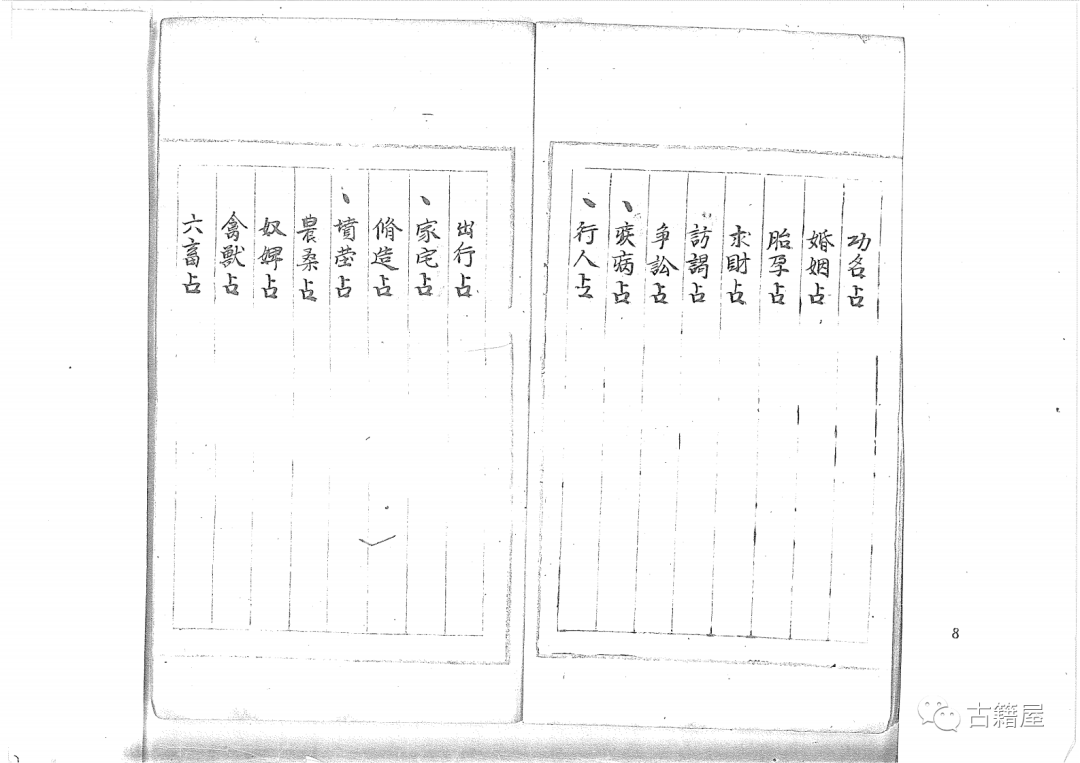 功名占
婚姻占
胎孕占
求財占
訪謁占
爭訟占
疾病占
行人占
出行占
家宅占
脩造占
墳塋占
農桑占
奴婢占
禽獸占
六畜占
8
古籍屋